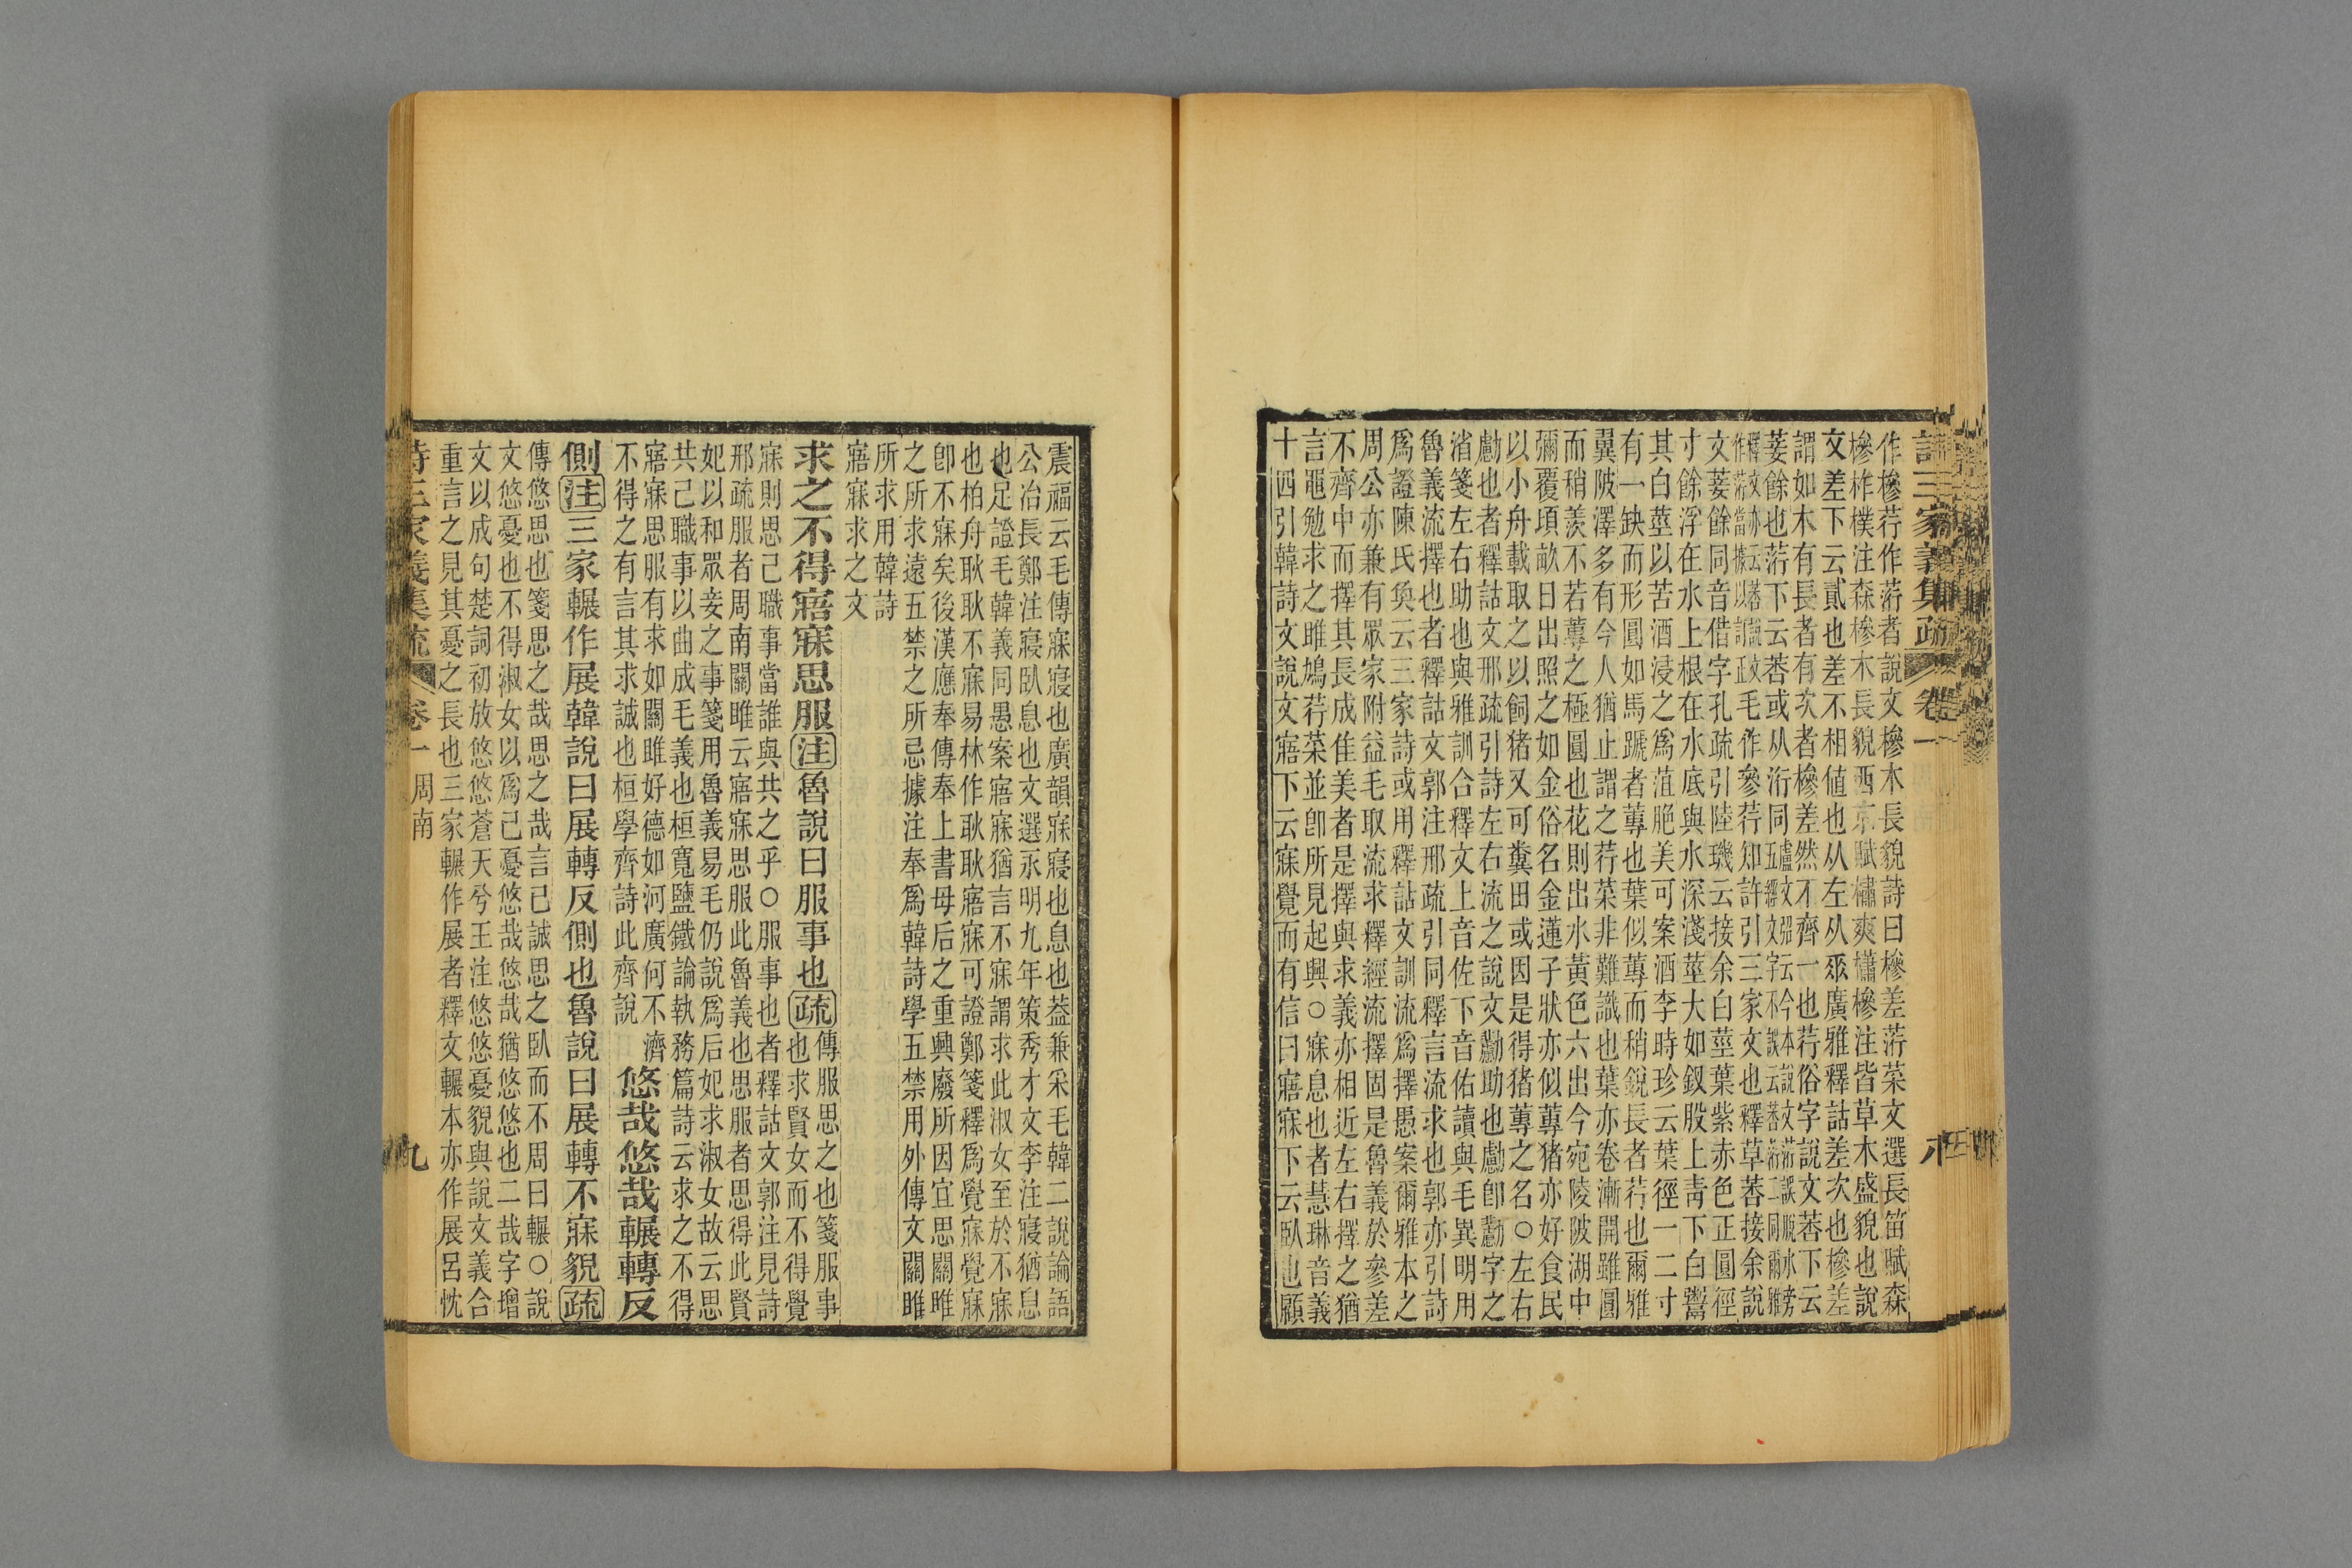 詩三家義集疏 卷一
作槮荇作𦳝者說文槮木長貌詩曰槮差荇菜文選長笛賦森
槮柞樸注森槮木長貌西京賦橚爽櫹槮注皆草木盛貌也說
文差下云貳也差不相値也从左从𠂹廣雅釋詁差次也槮差
謂如木有長者有次者槮差然不齊一也荇俗字說文莕下云
菨餘也荇下云莕或从洐同
作荇當據以訂政毛作參荇知許引三家文也釋草莕接余說
文菨餘同音借字孔疏引陸璣云接余白莖葉紫赤色正圓徑
寸餘浮在水上根在水底與水深淺莖大如釵股上靑下白鬻
其白莖以苦酒浸之爲菹脃美可案酒李時珍云葉徑一二寸
有一缺而形圓如馬蹏者蓴也葉似蓴而稍銳長者荇也爾雅
翼陂澤多有今人猶止謂之荇菜非難識也葉亦卷漸開雖圓
而稍羨不若蓴之極圓也花則出水黃色六出今宛陵陂湖中
彌覆頃畝日出照之如金俗名金蓮子狀亦似蓴猪亦好食民
以小舟載取之以飼猪又可糞田或因是得猪蓴之名○左右
勴也者釋詁文邢疏引詩左右流之說文勴助也勴卽勸字之
渻箋左右助也與雅訓合釋文上音佐下音佑讀與毛異明用
魯義流擇也者釋詁文郭注邢疏引同釋言流求也郭亦引詩
爲證陳氏奐云三家詩或用釋詁文訓流爲擇愚案爾雅本之
周公亦兼有眾家附益毛取流求釋經流擇固是魯義於參差
不齊中而擇其長成佳美者是擇與求義亦相近左右擇之猶
言黽勉求之雎鳩荇菜並卽所見起興○寐息也者慧琳音義
十四引韓詩文說文寤下云寐覺而有信曰寤寐下云臥也顧
震福云毛傳寐寢也廣韻寐寢也息也蓋兼采毛韓二說論語
公冶長鄭注寢臥息也文選永明九年策秀才文李注寢猶息
也足證毛韓義同愚案寤寐猶言不寐謂求此淑女至於不寐
也柏舟耿耿不寐易林作耿耿寤寐可證鄭箋釋爲覺寐覺寐
卽不寐矣後漢應奉傳奉上書母后之重興廢所因宜思關雎
之所求遠五禁之所忌據注奉爲韓詩學五禁用外傳文關雎
所求用韓詩
寤寐求之文
求之不得寤寐思服注魯說曰服事也疏傳服思之也箋服事
也求賢女而不得覺
寐則思己職事當誰與共之乎○服事也者釋詁文郭注見詩
邢疏服者周南關雎云寤寐思服此魯義也思服者思得此賢
妃以和眾妾之事箋用魯義易毛仍說爲后妃求淑女故云思
共己職事以曲成毛義也桓寬鹽鐵論執務篇詩云求之不得
寤寐思服有求如關雎好德如河廣何不濟
不得之有言其求誠也桓學齊詩此齊說 悠哉悠哉輾轉反
側注三家輾作展韓說曰展轉反側也魯說曰展轉不寐貌疏
傳悠思也箋思之哉思之哉言己誠思之臥而不周曰輾○說
文悠憂也不得淑女以爲己憂悠哉悠哉猶悠悠也二哉字增
文以成句楚詞初放悠悠蒼天兮王注悠悠憂貌與說文義合
重言之見其憂之長也三家輾作展者釋文輾本亦作展呂忱
詩三家義集疏 卷一 周南 九